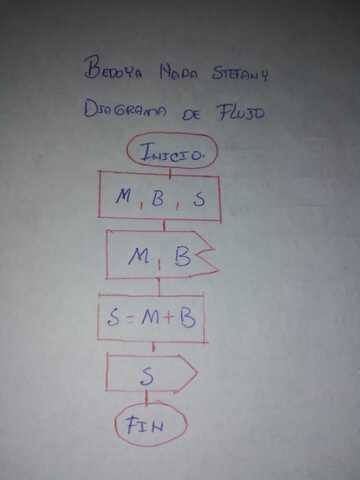 BEDOYA NAPA STEFANY
DIAGRAMA DE FLUJO
INICIO.
M, B, S
M, B
S = M + B
S
FIN